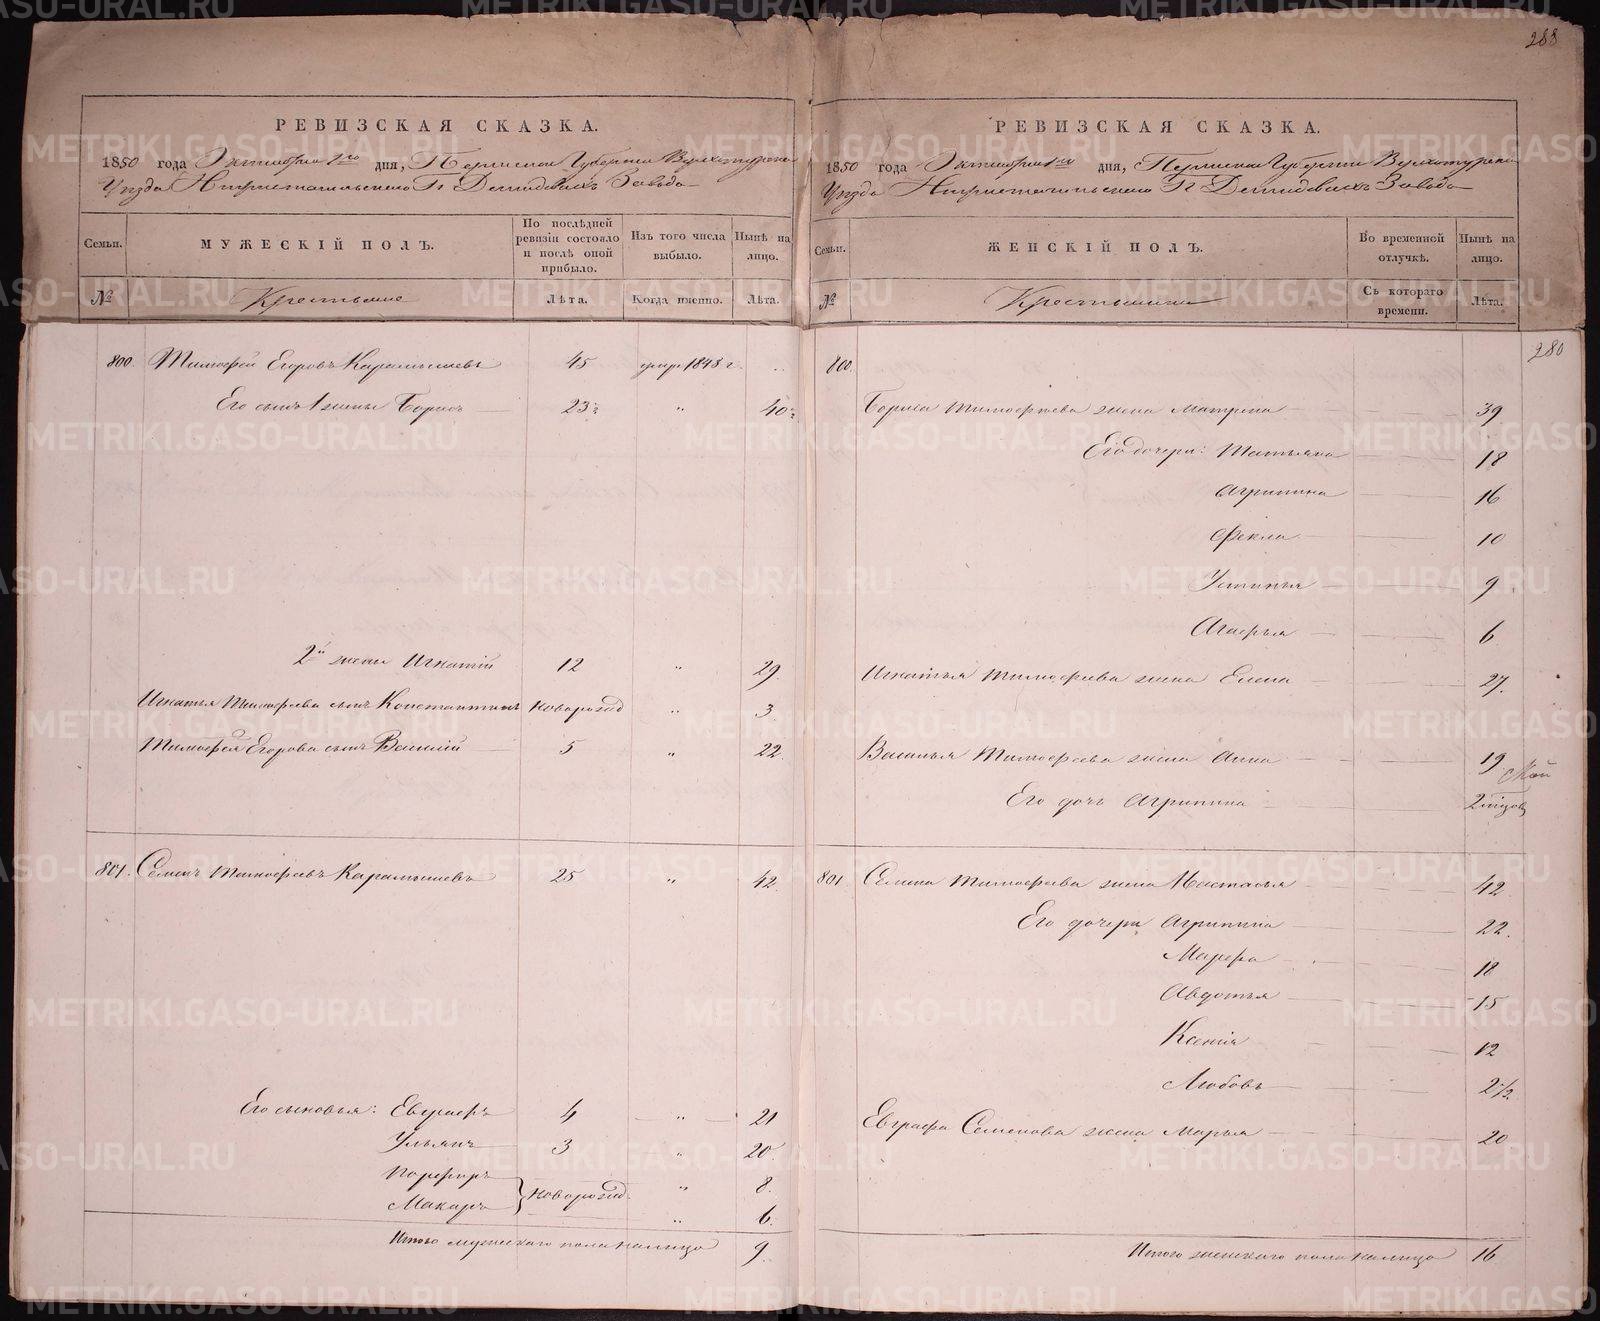 288
РЕВИЗСКАЯ СКАЗКА.
1850 года Октября 1го дня, Пермской Губернiи Верхотурска
Уѣзда Г. Демидовыхъ Завода
Семьи.
МУЖЕСКIЙ ПОЛЪ.
По послѣдней ревизiи состояло и послѣ оной прибыло.
Изъ того числа выбыло.
Нынѣ на лицо.
№
Крестьяне
Лѣта.
Когда именно.
Лѣта.
800. Тимофей Егоровъ Карамышевъ 45 умер 1843 г.
Его сынъ 1 жены Борисъ 23½ " 40½
2й жены Игнатiй 12 " 29.
Игнатья Тимофеева сынъ Константинъ новорожд " 3.
Тимофея Егорова сынъ Василiй 5 " 22.
801. Семенъ Тимофеевъ Карамышевъ 25 " 42.
Его сыновья: Евграфъ 4 " 21
Ульянъ 3 " 20.
Порфиръ новорожд. " 8.
Макаръ " 6.
Итого мужескаго пола налицо 9.
РЕВИЗСКАЯ СКАЗКА.
1850 года Октября 1го дня, Пермской Губернiи Верхотурско
Уѣзда Г. Демидовыхъ Завода
Семьи.
ЖЕНСКIЙ ПОЛЪ.
Во временной отлучкѣ.
Нынѣ на лицо.
№
Крестьянки
Съ котораго времени.
Лѣта.
280
800.
Бориса Тимофеева жена Матрена 39
Его дочери: Татьяна 18
Агрипина 16
Фекла 10
Устинья 9
Агафья 6
Игнатья Тимофеева жена Елена 27.
Василья Тимофеева жена Анна 19
Его дочь Агрипина 2
801. Семена Тимофеева жена Настасья 42
Его дочери Агрипина 22.
Марфа 18
Авдотья 15
Ксенiя 12
Любовь 2½
Евграфа Семенова жена Марья 20
Итого женскаго пола налицо 16
METRIKI.GASO-URAL.RU